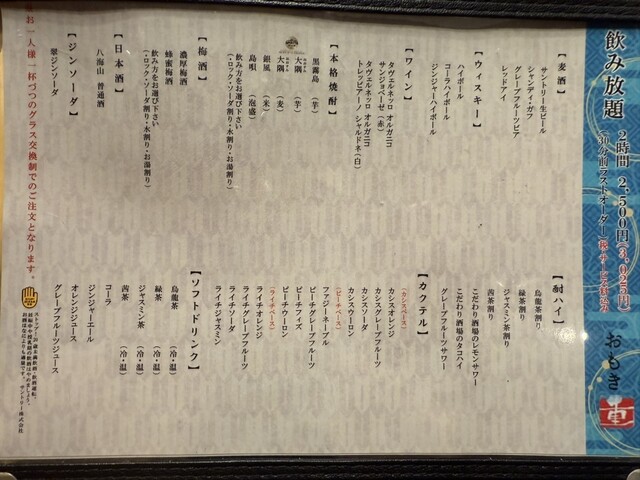 飲み放題
2時間 2,500円(3,025円)
(30分前ラストオーダー) 税・サービス料込み
おもき
【麦酒】
サントリー生ビール
シャンディ・ガフ
グレープフルーツビア
レッドアイ
【ウィスキー】
ハイボール
コーラハイボール
ジンジャーハイボール
【ワイン】
タヴェルネッロ オルガニコ
サンジョベーゼ(赤)
タヴェルネッロ オルガニコ
トレッビアーノ シャルドネ(白)
【本格焼酎】
黒霧島 (芋)
大隅 (芋)
大隅 (麦)
銀風 (米)
島唄 (泡盛)
飲み方をお選び下さい
(・ロック・ソーダ割り・水割り・お湯割り)
【梅酒】
濃厚梅酒
蜂蜜梅酒
飲み方をお選び下さい
(・ロック・ソーダ割り・水割り・お湯割り)
【日本酒】
八海山 普通酒
【ジンソーダ】
翠ジンソーダ
お一人様一杯づつのグラス交換制でのご注文となります。
【酎ハイ】
烏龍茶割り
緑茶割り
ジャスミン茶割り
茜茶割り
こだわり酒場のレモンサワー
こだわり酒場のタコハイ
グレープフルーツサワー
【カクテル】
(カシスベース)
カシスオレンジ
カシスグレープフルーツ
カシスソーダ
カシスウーロン
(ピーチベース)
ファジーネーブル
ピーチグレープフルーツ
ピーチフィズ
ピーチウーロン
(ライチベース)
ライチオレンジ
ライチグレープフルーツ
ライチソーダ
ライチジャスミン
【ソフトドリンク】
烏龍茶 (冷・温)
緑茶 (冷・温)
ジャスミン茶 (冷・温)
茜茶 (冷・温)
コーラ
ジンジャーエール
オレンジジュース
グレープフルーツジュース
ストップ!20歳未満飲酒・飲酒運転。
妊娠中や授乳期の飲酒はやめましょう。
お酒はなによりも適量です。
サントリー株式会社